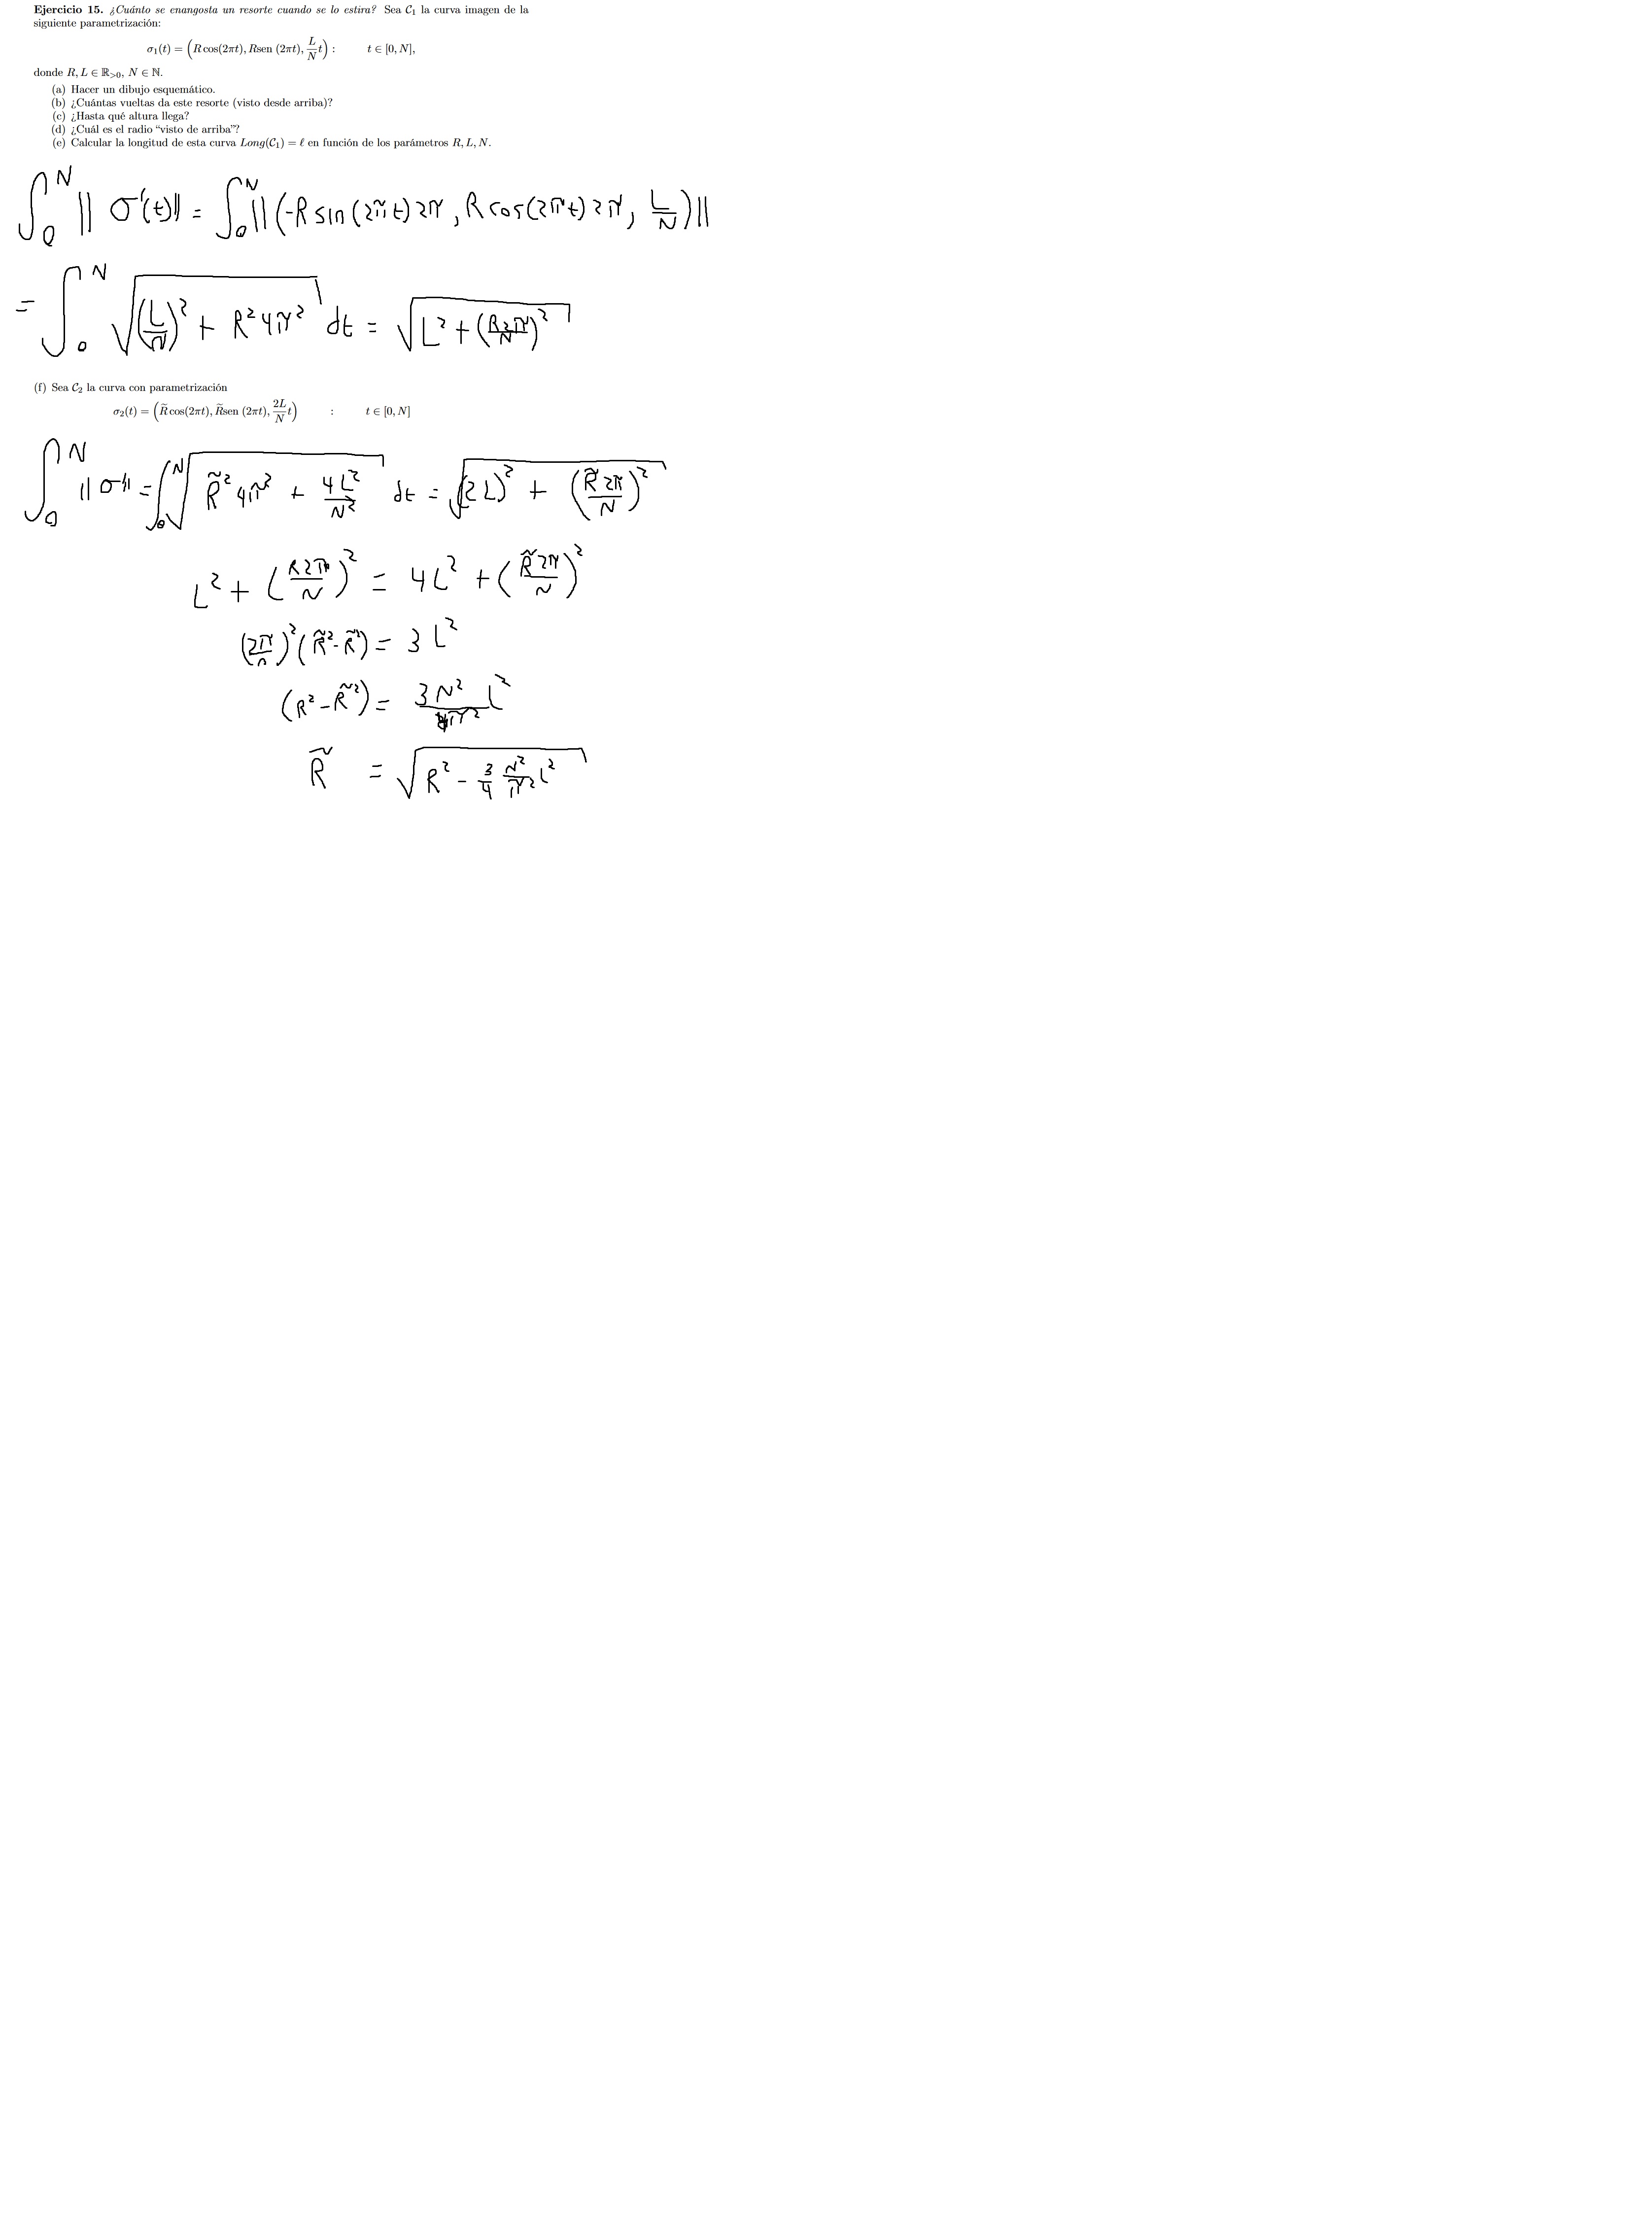 Ejercicio 15. ¿Cuánto se enangosta un resorte cuando se lo estira? Sea C₁ la curva imagen de la
siguiente parametrización:
σ₁(t) = (R cos(2πt), Rsen (2πt), L/N t) : t ∈ [0, N],
donde R, L ∈ ℝ>0, N ∈ ℕ.
(a) Hacer un dibujo esquemático.
(b) ¿Cuántas vueltas da este resorte (visto desde arriba)?
(c) ¿Hasta qué altura llega?
(d) ¿Cuál es el radio “visto de arriba”?
(e) Calcular la longitud de esta curva Long(C₁) = ℓ en función de los parámetros R, L, N.
∫₀ᴺ ||σ'(t)|| = ∫₀ᴺ ||(-R sin(2πt) 2π, R cos(2πt) 2π, L/N)||
= ∫₀ᴺ √((L/N)² + R² 4π²) dt = √(L² + (R2π/N)²)
(f) Sea C₂ la curva con parametrización
σ₂(t) = (R̃ cos(2πt), R̃sen (2πt), 2L/N t) : t ∈ [0, N]
∫₀ᴺ ||σ'|| = ∫₀ᴺ √(R̃² 4π² + 4L²/N²) dt = √((2L)² + (R̃ 2π/N)²)
L² + (R2π/N)² = 4L² + (R̃ 2π/N)²
(2π/n)² (R̃² - R̃²) = 3L²
(R² - R̃²) = 3N²/4π² L²
R̃ = √(R² - 3/4 N²/π² L²)